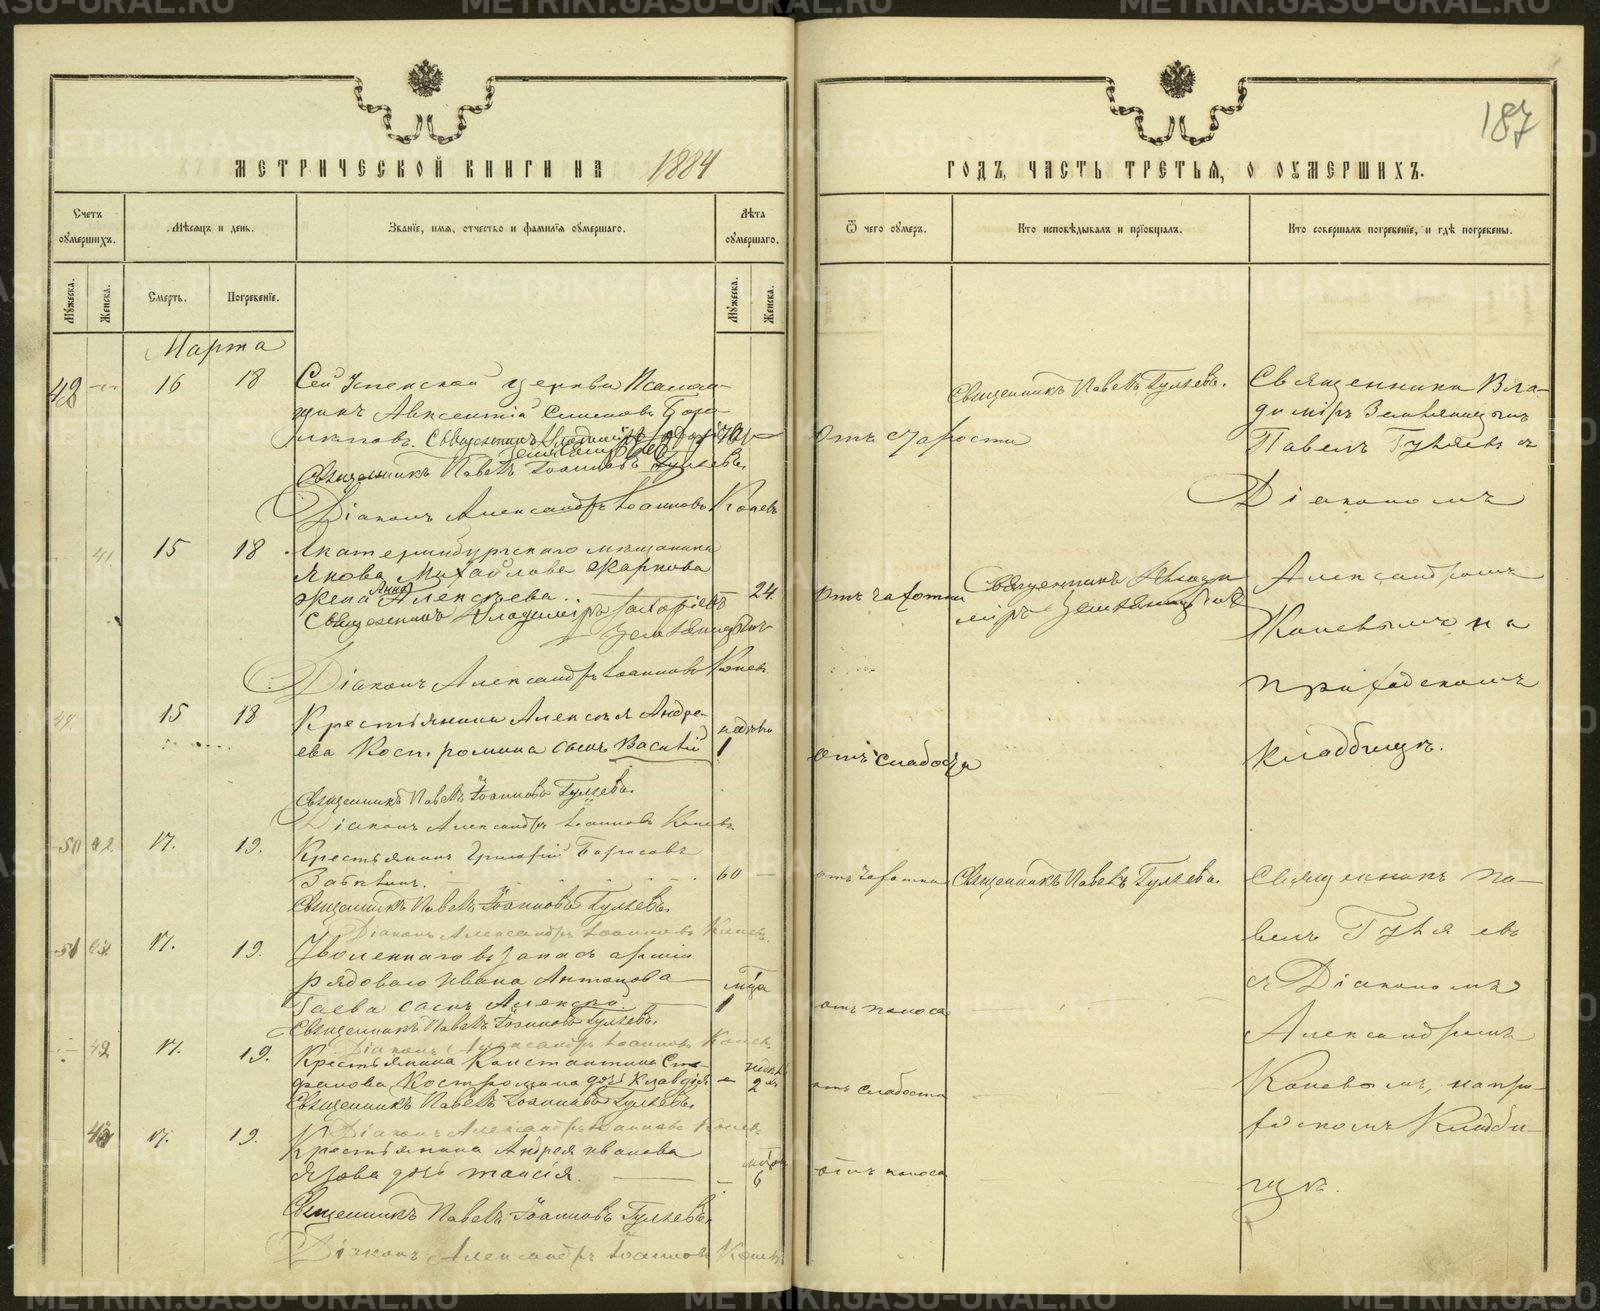 МЕТРИЧЕСКОЙ КНИГИ НА 1884
ГОДЪ, ЧАСТЬ ТРЕТЬЯ, О ОУМЕРШИХЪ.
187
Счетъ оумершихъ.
Мѣсяцъ и день.
Званіе, имя, отчество и фамилія оумершаго.
Лѣта оумершаго.
Ѿ чего оумеръ.
Кто исповѣдывалъ и пріобщалъ.
Кто совершалъ погребеніе, и гдѣ погребены.
Мужеска.
Женска.
Смерть.
Погребеніе.
Мужеска.
Женска.
Марта
48
16
18
Сей Успенской церкви Псалом-
щикъ Авксентій Симеоновъ
Священникъ Владиміръ
Священникъ Павелъ Іоанновъ Гуляевъ.
Діаконъ Александръ Іоанновъ Коневъ
70
отъ старости
Священникъ Павелъ Гуляевъ.
Священники Вла-
диміръ Земляницынъ
Павелъ Гуляевъ съ
Діакономъ
Александромъ
Коневымъ на
приходскомъ
кладбищѣ.
41
15
18
Екатеринбургскаго мѣщанина
Якова Михайлова Жаркова
жена Анна Алексѣева
Священникъ Владиміръ Захаріевъ
Земляницынъ
Діаконъ Александръ Іоанновъ Коневъ
24
отъ чахотки
Священникъ Влади
міръ Земляницынъ
49
15
18
Крестьянина Алексѣя Андре-
ева Костромина сынъ Василій
Священникъ Павелъ Іоанновъ Гуляевъ.
Діаконъ Александръ Іоанновъ Коневъ
1
отъ слабости
50
17.
19.
Крестьянинъ Григорій Борисовъ
Священникъ Павелъ Іоанновъ Гуляевъ.
Діаконъ Александръ Іоанновъ Коневъ
60
отъ чахотки
Священникъ Павелъ Гуляевъ.
Священникъ Па-
велъ Гуляевъ
съ Діакономъ
Александромъ
Коневымъ, на при-
ходскомъ Кладби-
щѣ.
51
17.
19.
Уволеннаго въ запасъ арміи
рядоваго Ивана Антонова
сынъ Алексѣй
Священникъ Павелъ Іоанновъ Гуляевъ.
Діаконъ Александръ Іоанновъ Коневъ
1
отъ поноса
42
17.
19.
Крестьянина Константина Сте-
фанова Костромина дочь Клавдія
Священникъ Павелъ Іоанновъ Гуляевъ.
Діаконъ Александръ Іоанновъ Коневъ
2
отъ слабости
43
17.
19.
Крестьянина Андрея Иванова
дочь Таисія.
Священникъ Павелъ Іоанновъ Гуляевъ.
Діаконъ Александръ Іоанновъ Коневъ
6
отъ поноса
METRIKI.GASO-URAL.RU